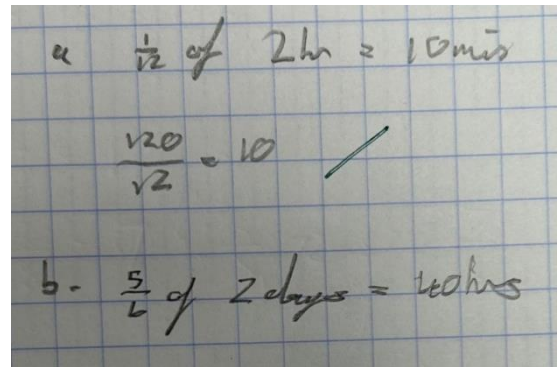 a 1/12 of 2hr = 10 mins
120/12 = 10
b. 5/6 of 2 days = 40hrs